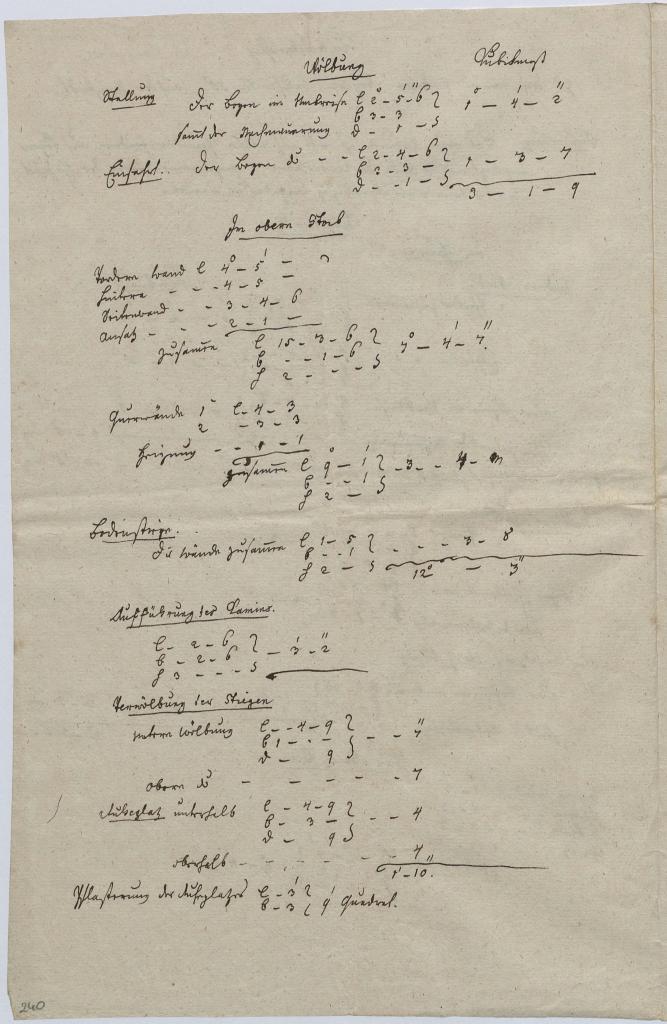 Wölbung Kubikmaß
Stellung der Bogen im Umkreise l 2° - 5' - 6" 1° - 4' - 2"
b 3 - 3
samt der Nachmauerung d - 1 - 5
Einfahrt. der Bogen do - - l 2 - 4 - 6 1 - 3 - 7
b 3 - 3 -
d - - 1 - 3 - 1 - 9
Im obern Stok
Vordere wand l 4° - 5' -
Hintere - - - 4 - 5 -
Seitenwand - - 3 - 4 - 6
Ansatz - - - 2 - 1 -
Zusammen l 15 - 3 - 6 7° - 4' - 7"
b - - 1 - 6
h 2 - - -
Querwände 1 l - 4 - 3
2 - 3 - 3
Heizung - - 1 - 1
zusammen l 9° - 1' - 3 - 4 -
b - - 1
h 2 -
Bodenstiege.
Die wände zusammen l 1 - 5 - - - 3 - 8
b - - 1
h 2 - 12° - 3"
Aufführung des Kamins.
l - 2 - 6 - 3' - 2"
b - 2 - 6
h 3 - - -
Verwölbung der Stiegen
untere Wölbung l - - 4 - 9 - - 7"
b 1 - - -
d - 9
obere do - - - - - 7
Ruheplatz unterhalb l - 4 - 9 - - 4
b - 3 -
d - 9
oberhalb - - - - - 4
1' - 10".
Pflasterung der Ruheplatzes l - 3'
b - 3 9' Quadrat.
240